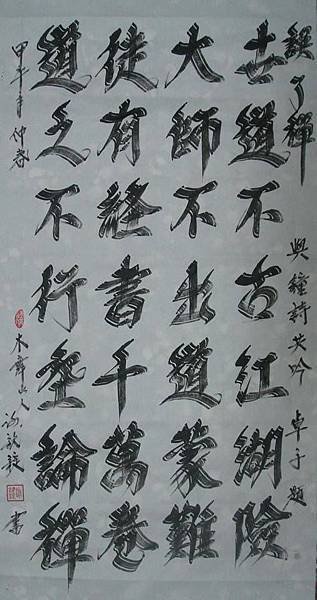 了禪 詩 吟 卓子題
世道不古江湖險
大師不出道蒙難
徒有經書千萬卷
道之不行空論禪
甲午年仲春 木 山人 書